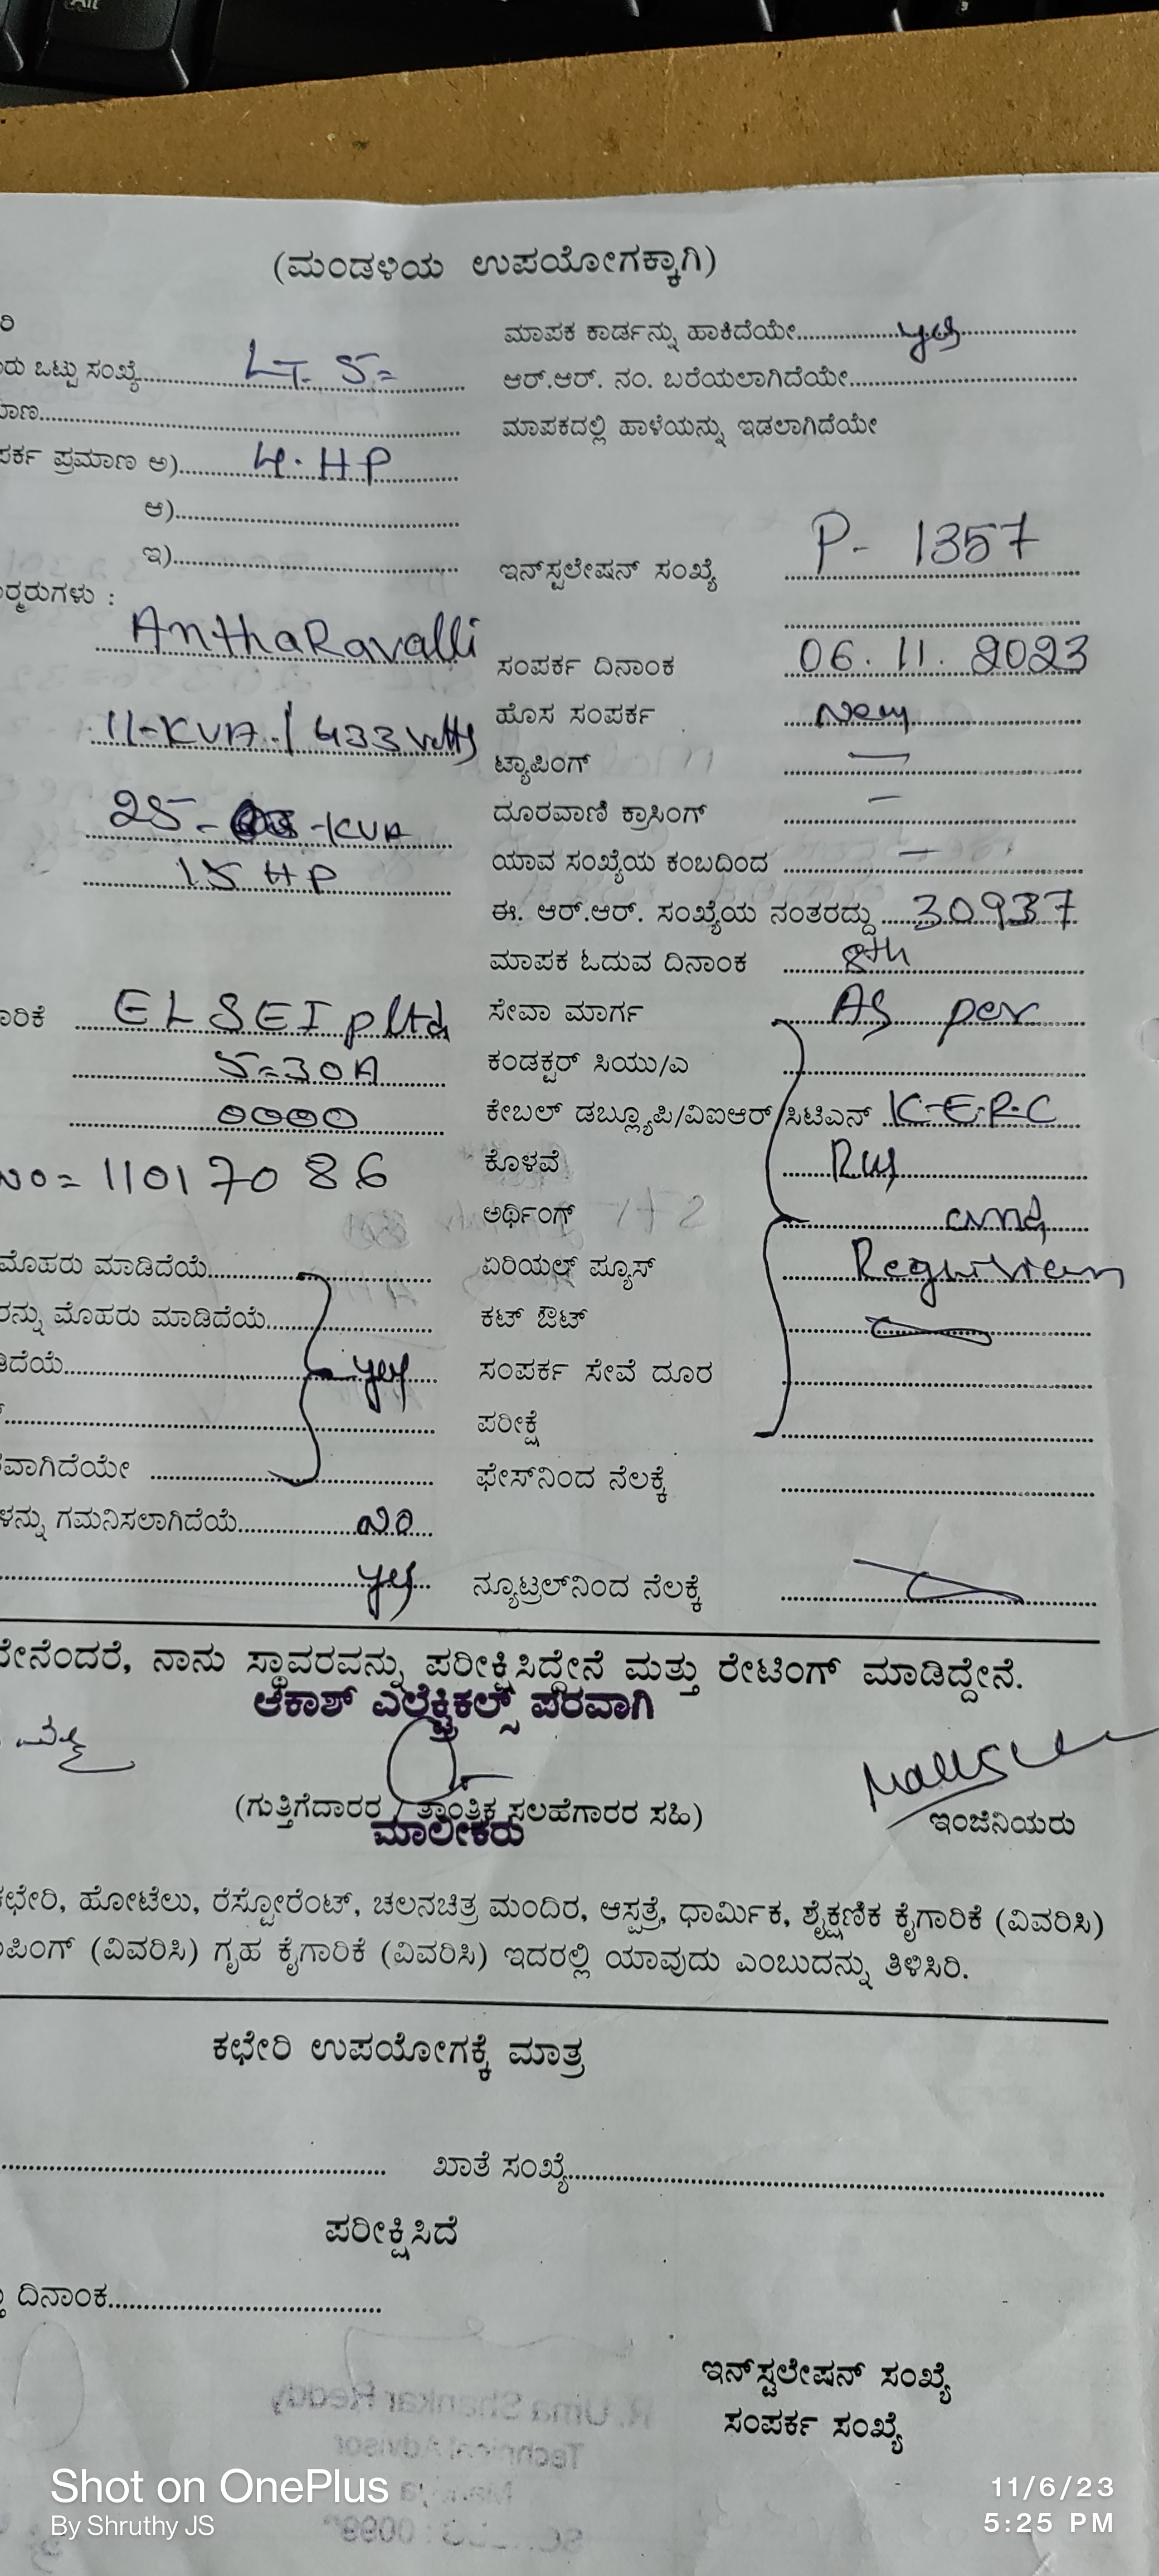 (ಮಂಡಳಿಯ ಉಪಯೋಗಕ್ಕಾಗಿ)
ರಿ
ಮಾಪಕ ಕಾರ್ಡನ್ನು ಹಾಕಿದೆಯೇ yes
ರು ಒಟ್ಟು ಸಂಖ್ಯೆ LT- 5=
ಆರ್.ಆರ್. ನಂ. ಬರೆಯಲಾಗಿದೆಯೇ
ಮಾಣ
ಮಾಪಕದಲ್ಲಿ ಹಾಳೆಯನ್ನು ಇಡಲಾಗಿದೆಯೇ
ಪರ್ಕ ಪ್ರಮಾಣ ಅ) 4.HP
ಆ)
ಇ)
ಇನ್‌ಸ್ಟಲೇಷನ್ ಸಂಖ್ಯೆ P- 1357
ರ್ಮರುಗಳು :
AnthaRavalli
ಸಂಪರ್ಕ ದಿನಾಂಕ 06.11.2023
11-KVA / 433 Volts
ಹೊಸ ಸಂಪರ್ಕ New
ಟ್ಯಾಪಿಂಗ್ —
25- -KVA
ದೂರವಾಣಿ ಕ್ರಾಸಿಂಗ್ —
15 HP
ಯಾವ ಸಂಖ್ಯೆಯ ಕಂಬದಿಂದ —
ಈ. ಆರ್.ಆರ್. ಸಂಖ್ಯೆಯ ನಂತರದ್ದು 30937
ಮಾಪಕ ಓದುವ ದಿನಾಂಕ 8th
ಾರಿಕೆ ELSEI pltd
ಸೇವಾ ಮಾರ್ಗ As per
5-30A
ಕಂಡಕ್ಟರ್ ಸಿಯು/ಎ
0000
ಕೇಬಲ್ ಡಬ್ಲ್ಯೂಪಿ/ವಿಐಆರ್/ಸಿಟಿಎನ್ K-E-R-C
NO= 11017086
ಕೊಳವೆ
ಅರ್ಥಿಂಗ್ and
ಮೊಹರು ಮಾಡಿದೆಯೆ
ಏರಿಯಲ್ ಪ್ಯೂಸ್
ರನ್ನು ಮೊಹರು ಮಾಡಿದೆಯೆ
ಕಟ್ ಔಟ್
ಡಿದೆಯೆ yes
ಸಂಪರ್ಕ ಸೇವೆ ದೂರ
ಪರೀಕ್ಷೆ
ವಾಗಿದೆಯೇ
ಫೇಸ್‌ನಿಂದ ನೆಲಕ್ಕೆ
ಳನ್ನು ಗಮನಿಸಲಾಗಿದೆಯೆ no
yes
ನ್ಯೂಟ್ರಲ್‌ನಿಂದ ನೆಲಕ್ಕೆ
ೇನೆಂದರೆ, ನಾನು ಸ್ಥಾವರವನ್ನು ಪರೀಕ್ಷಿಸಿದ್ದೇನೆ ಮತ್ತು ರೇಟಿಂಗ್ ಮಾಡಿದ್ದೇನೆ.
ಆಕಾಶ್ ಎಲೆಕ್ಟ್ರಿಕಲ್ಸ್ ಪರವಾಗಿ
(ಗುತ್ತಿಗೆದಾರರ / ತಾಂತ್ರಿಕ ಸಲಹೆಗಾರರ ಸಹಿ)
ಇಂಜಿನಿಯರು
ಮಾಲೀಕರು
ಕಛೇರಿ, ಹೋಟೆಲು, ರೆಸ್ಟೋರೆಂಟ್, ಚಲನಚಿತ್ರ ಮಂದಿರ, ಆಸ್ಪತ್ರೆ, ಧಾರ್ಮಿಕ, ಶೈಕ್ಷಣಿಕ ಕೈಗಾರಿಕೆ (ವಿವರಿಸಿ)
ಪಿಂಗ್ (ವಿವರಿಸಿ) ಗೃಹ ಕೈಗಾರಿಕೆ (ವಿವರಿಸಿ) ಇದರಲ್ಲಿ ಯಾವುದು ಎಂಬುದನ್ನು ತಿಳಿಸಿರಿ.
ಕಛೇರಿ ಉಪಯೋಗಕ್ಕೆ ಮಾತ್ರ
ಖಾತೆ ಸಂಖ್ಯೆ
ಪರೀಕ್ಷಿಸಿದೆ
ದಿನಾಂಕ
ಇನ್‌ಸ್ಟಲೇಷನ್ ಸಂಖ್ಯೆ
ಸಂಪರ್ಕ ಸಂಖ್ಯೆ
Shot on OnePlus
By Shruthy JS
11/6/23
5:25 PM